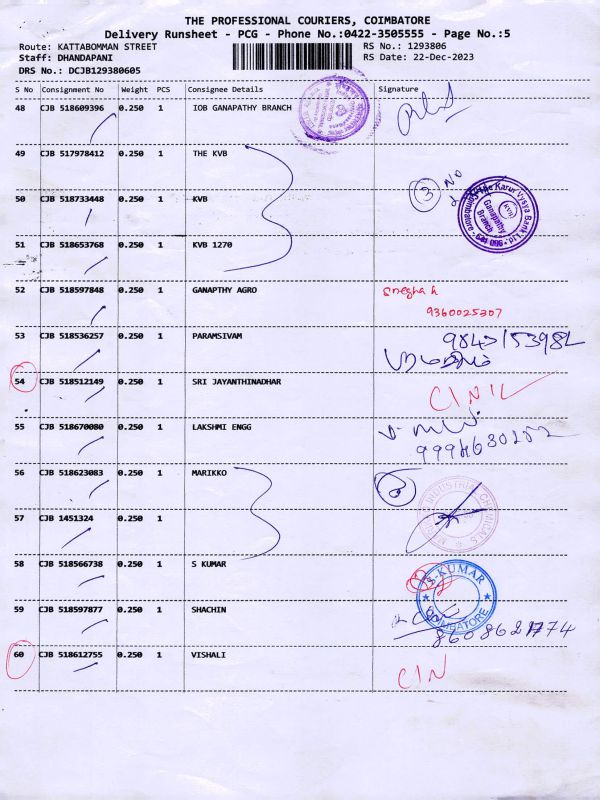 THE PROFESSIONAL COURIERS, COIMBATORE
Delivery Runsheet - PCG - Phone No.:0422-3505555 - Page No.:5
Route: KATTABOMMAN STREET RS No.: 1293806
Staff: DHANDAPANI RS Date: 22-Dec-2023
DRS No.: DCJB129380605
S No Consignment No Weight PCS Consignee Details Signature
48 CJB 518609396 0.250 1 IOB GANAPATHY BRANCH
49 CJB 517978412 0.250 1 THE KVB
3 NO
50 CJB 518733448 0.250 1 KVB
The Karur Vysya Bank Ltd
Ganapathy Branch
KVB
51 CJB 518653768 0.250 1 KVB 1270
52 CJB 518597848 0.250 1 GANAPTHY AGRO Snegha k
9360025307
53 CJB 518536257 0.250 1 PARAMSIVAM
54 CJB 518512149 0.250 1 SRI JAYANTHINADHAR
55 CJB 518670080 0.250 1 LAKSHMI ENGG
56 CJB 518623083 0.250 1 MARIKKO
INDUSTRIAL CHEMICALS
57 CJB 1451324 0.250 1
58 CJB 518566738 0.250 1 S KUMAR
S-KUMAR
COIMBATORE
59 CJB 518597877 0.250 1 SHACHIN
60 CJB 518612755 0.250 1 VISHALI